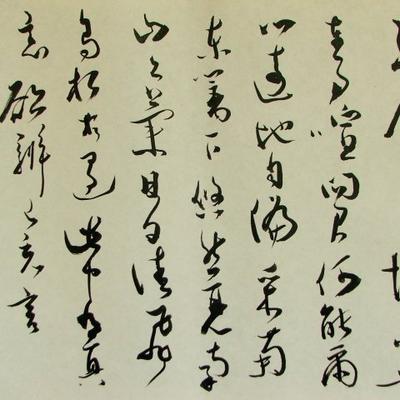 車馬喧問君何能爾
心遠地自偏采菊
東籬下悠然見南
山山氣日夕佳飛
鳥相與還此中有真
意欲辨已忘言